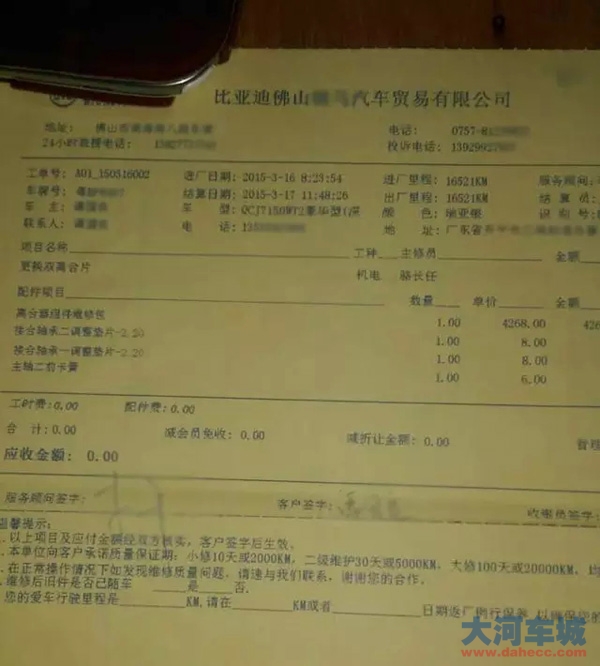 比亚迪佛山 汽车贸易有限公司
地址: 佛山市 电话: 0757-8
24小时救援电话: 投诉电话: 13929
工单号: A01_150516002 进厂日期: 2015-3-16 8:23:54 进厂里程: 16521KM 服务顾问:
车牌号: 结算日期: 2015-3-17 11:48:26 出厂里程: 16521KM 结算员:
车主: 车型: QCJ7150WT2豪华型 颜色: 地亚银 识别号
联系人: 电话: 地址: 广东省
项目名称 工种 主修员 金额
更换双离合片 机电 骆长任
配件项目 数量 单价 金额
离合器组件维修包 1.00 4268.00
接合轴承二调整垫片-2.20 1.00 8.00
接合轴承一调整垫片-2.20 1.00 8.00
主轴二前卡簧 1.00 6.00
工时费:0.00 配件费:0.00
合计:0.00 减会员免收: 0.00 减折让金额: 0.00 管理
应收金额: 0.00
服务顾问签字: 客户签字: 收银员签字
温馨提示:
.以上项目及应付金额经双方核实，客户签字后生效。
.本单位向客户承诺质量保证期: 小修10天或2000KM, 二级维护30天或5000KM, 大修100天或20000KM, 均
.在正常操作情况下如发现维修质量问题，请速与我们联系，谢谢您的合作。
.维修后旧件是否已随车 是 否.
.您的爱车行驶里程是 KM,请在 KM或者 日期返厂例行保养
大河车城
www.dahecc.com